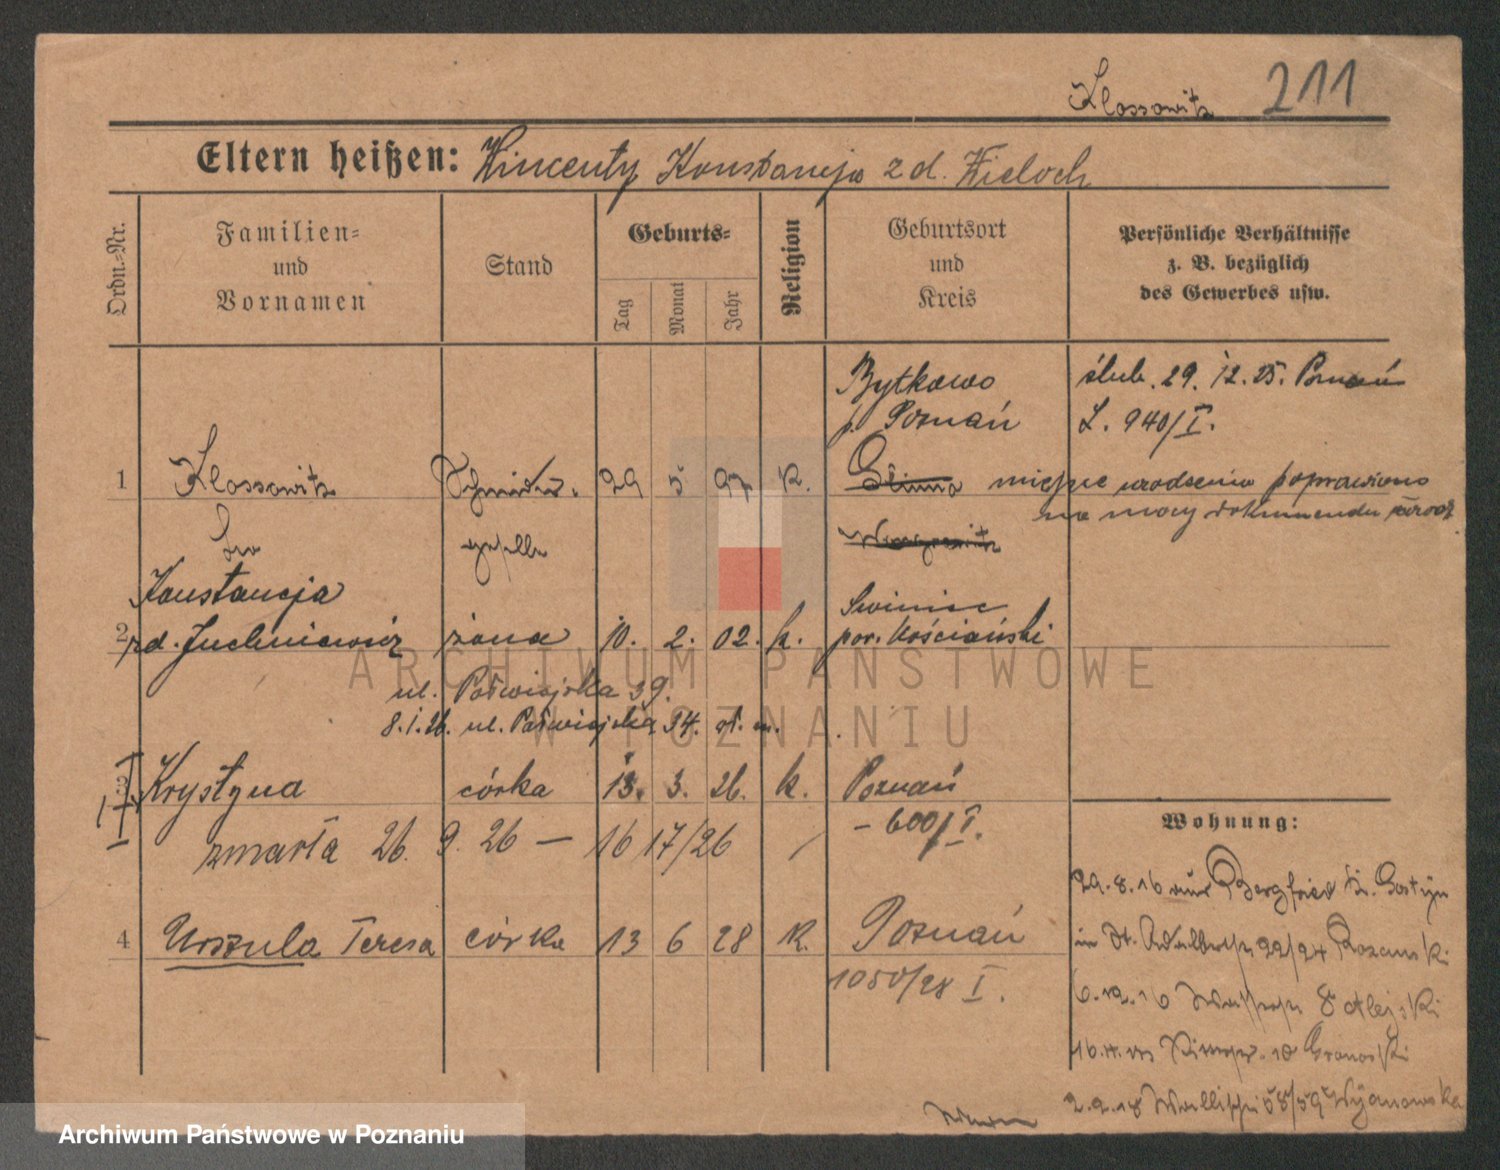 Klossowitz 211
Eltern heißen: Wincenty Konstancja z d. Wieloch
Ordn.-Nr.
Familien-
und
Vornamen
Stand
Geburts-
Tag
Monat
Jahr
Religion
Geburtsort
und
Kreis
Persönliche Verhältnisse
z. B. bezüglich
des Gewerbes usw.
Bytkowo
p. Poznań
ślub. 29. 12. 25. Poznań
L. 940/I.
1 Klossowitz 29 5 97 K. Glinno miejsce urodzenia poprawiono
na mocy dokumentu
geselle
Konstancja
2 zd. Juchniewicz żona 10. 2. 02. k.
pow. Kościański
ul. Półwiejska 39.
8.1.26. ul. Półwiejska 34.
3 Krystyna córka 13. 3. 26. k. Poznań
- 600/I.
zmarła 26. 9. 26 — 16 17/26
Wohnung:
29.8.16 aus Bergfried Kr. Gostyn
in St. Adalbertstr 22/24 Rozanski
4 Urszula Teresa córka 13 6 28 K. Poznań
1050/28 I.
6.12.16
2.9.18 Wallischei 58/59 Wyanowska
Archiwum Państwowe w Poznaniu
ARCHIWUM PAŃSTWOWE
W POZNANIU